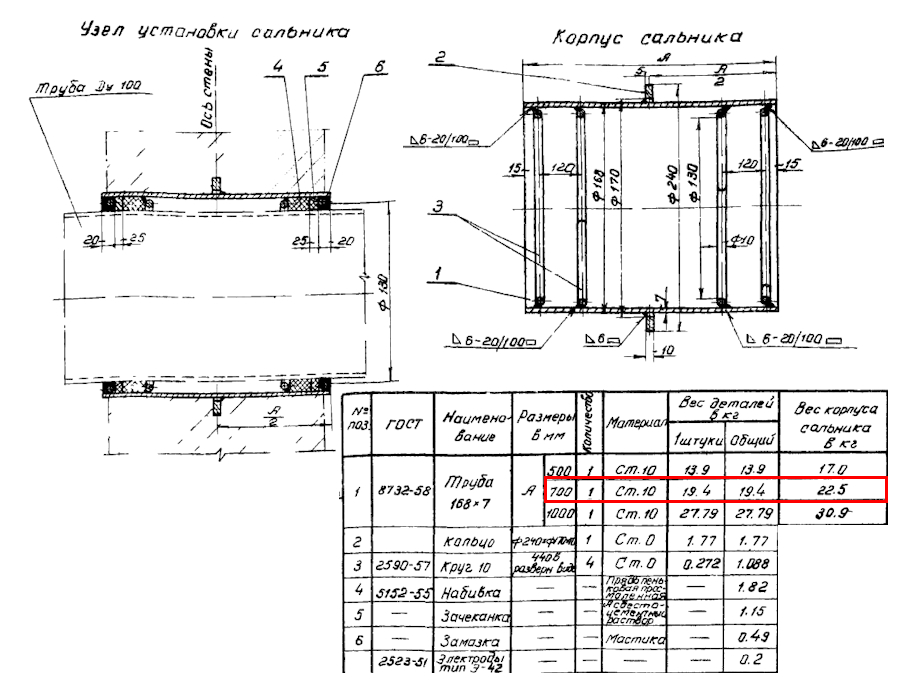 Узел установки сальника
Корпус сальника
Труба Dy 100
Ось стены
4
5
6
20
25
25
20
ф 130
А
2
А
2
5
А
2
⊿6-20/100
⊿6-20/100
15
120
ф 168
ф 170
ф 240
ф 130
120
15
3
ф10
1
7
⊿ 6-20/100
⊿6
⊿ 6-20/100
10
№ поз.
ГОСТ
Наимено-вание
Размеры в мм
Количество
Материал
Вес деталей в кг
1 штуки
Общий
Вес корпуса сальника в кг
1 8732-58 Труба 168×7 А
500 1 Ст.10 13.9 13.9 17.0
700 1 Ст.10 19.4 19.4 22.5
1000 1 Ст.10 27.79 27.79 30.9
2 Кольцо 1 Ст.0 1.77 1.77
3 2590-57 Круг 10 440 в разверн виде 4 Ст.0 0.272 1.088
4 5152-55 Набивка — — Прядь пень-ковая прос-моленная — 1.82
5 — Зачеканка — — Асбесто-цементный раствор — 1.15
6 — Замазка — — Мастика — 0.49
2523-51 Электроды тип Э-42 — — — — 0.2